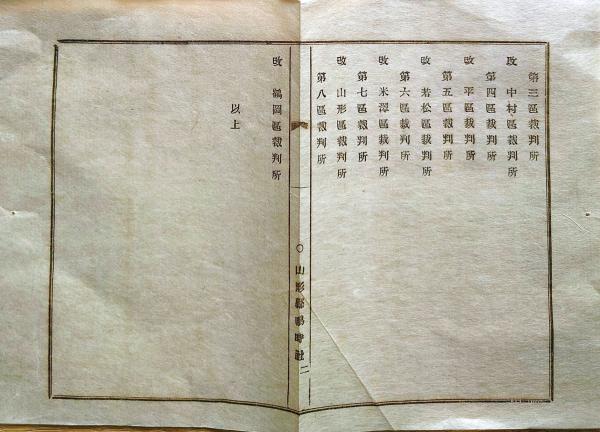 第三區裁判所
改 中村區裁判所
第四區裁判所
改 平區裁判所
第五區裁判所
改 若松區裁判所
第六區裁判所
改 米澤區裁判所
第七區裁判所
改 山形區裁判所
第八區裁判所
〇 山形縣
二
改 鶴岡區裁判所
以上